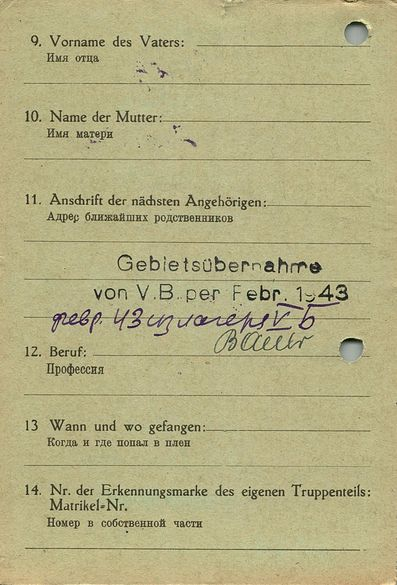 9. Vorname des Vaters:
Имя отца
10. Name der Mutter:
Имя матери
11. Anschrift der nächsten Angehörigen:
Адрес ближайших родственников
Gebietsübernahme
von V.B. per Febr. 1943
февр. 43 из лагеря V b
Bauer
12. Beruf:
Профессия
13 Wann und wo gefangen:
Когда и где попал в плен
14. Nr. der Erkennungsmarke des eigenen Truppenteils:
Matrikel=Nr.
Номер в собственной части